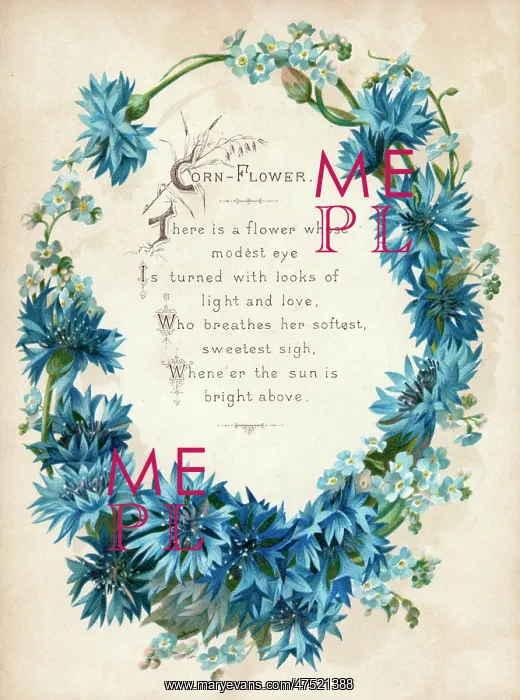 Corn-Flower.
There is a flower whose
modest eye
Is turned with looks of
light and love,
Who breathes her softest,
sweetest sigh,
Whene'er the sun is
bright above.
ME
PL
ME
PL
www.maryevans.com/47521388